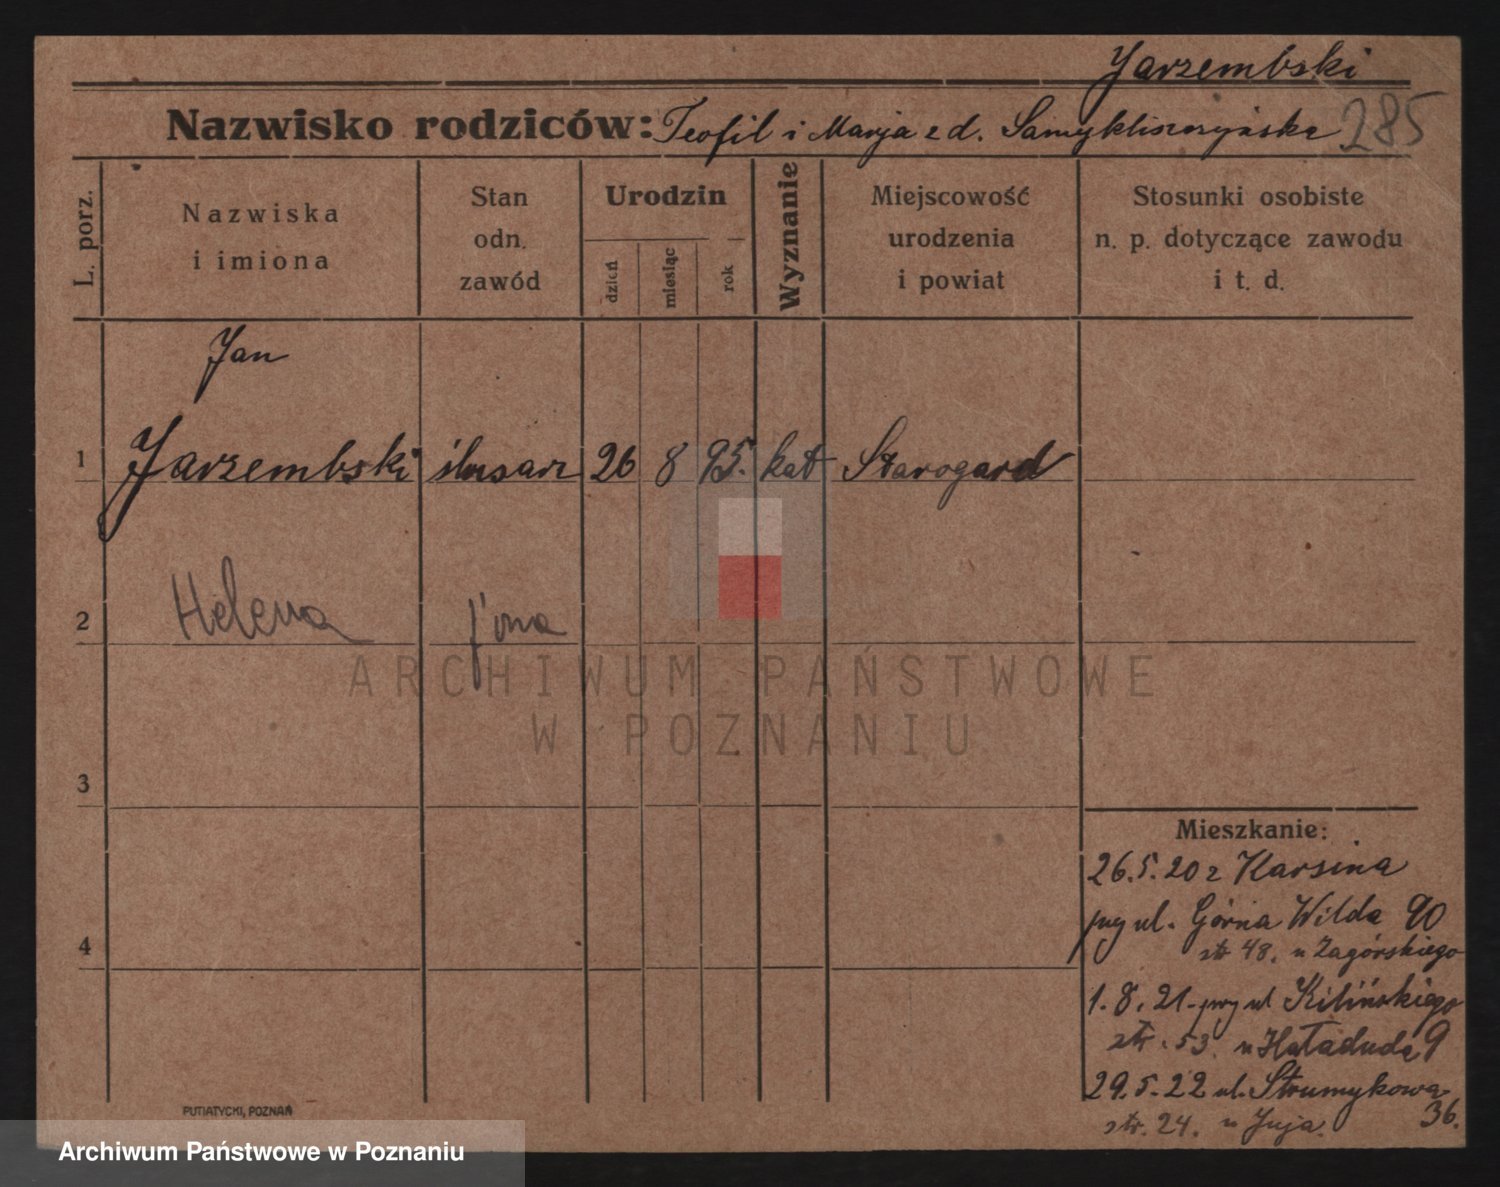 Jarzembski
Nazwisko rodziców: Teofil i Marja z d. 285
L. porz.
Nazwiska
i imiona
Stan
odn.
zawód
Urodzin
dzień
miesiąc
rok
Wyznanie
Miejscowość
urodzenia
i powiat
Stosunki osobiste
n. p. dotyczące zawodu
i t. d.
Jan
1 Jarzembski ślusarz 26 8 95. kat Starogard
2 Helena żona
3
4
Mieszkanie:
26.5.20 z Karsina
przy ul. Górna Wilda 90
str 48. u Zagórskiego
1.8.21. przy ul Kilińskiego 9
str. 53. u
29.5.22 ul. Strumykowa 36.
str. 24. u
PUTIATYCKI, POZNAŃ
ARCHIWUM PAŃSTWOWE
W POZNANIU
Archiwum Państwowe w Poznaniu